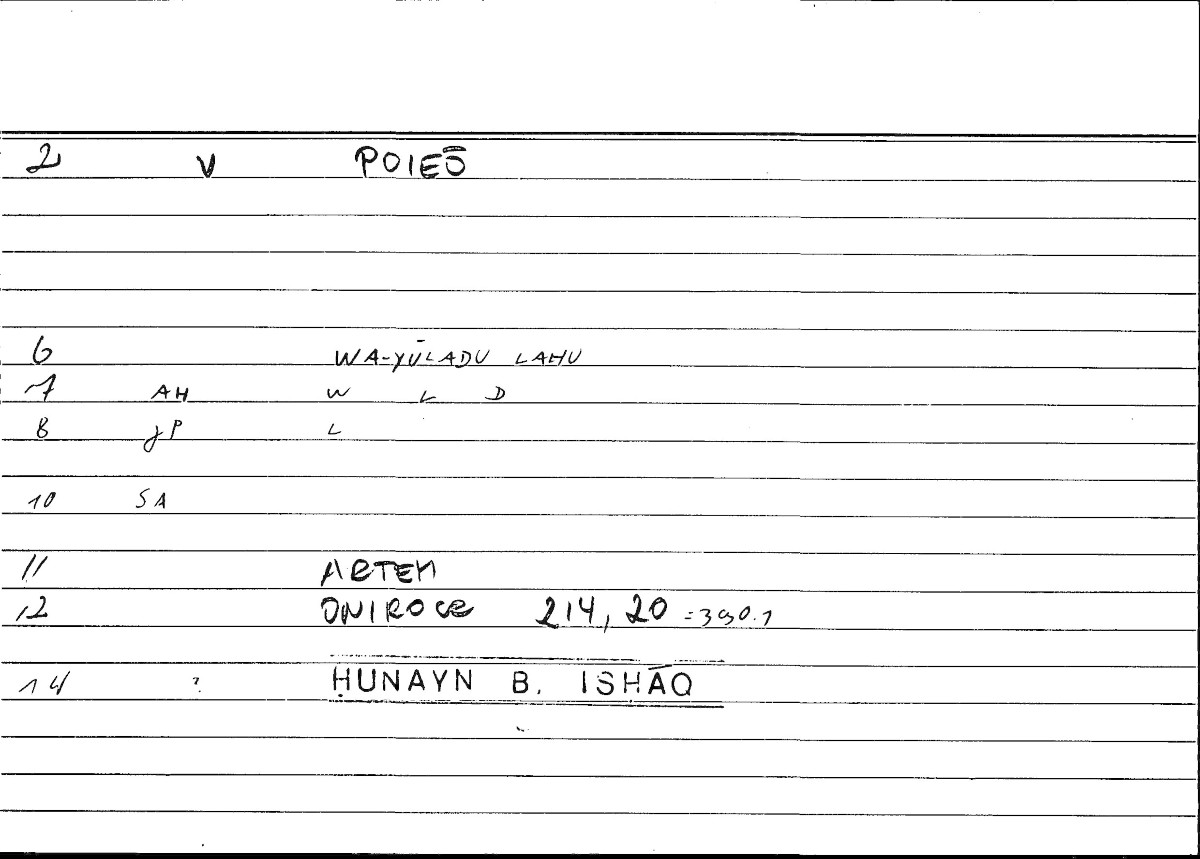 2 V POIEŌ
6 WA-YŪLADU LAHU
7 AH W L D
8 JP L
10 SA
11 ARTEM
12 ONIROCR 214, 20 = 390.1
14 ? ḤUNAYN B. ISḤĀQ